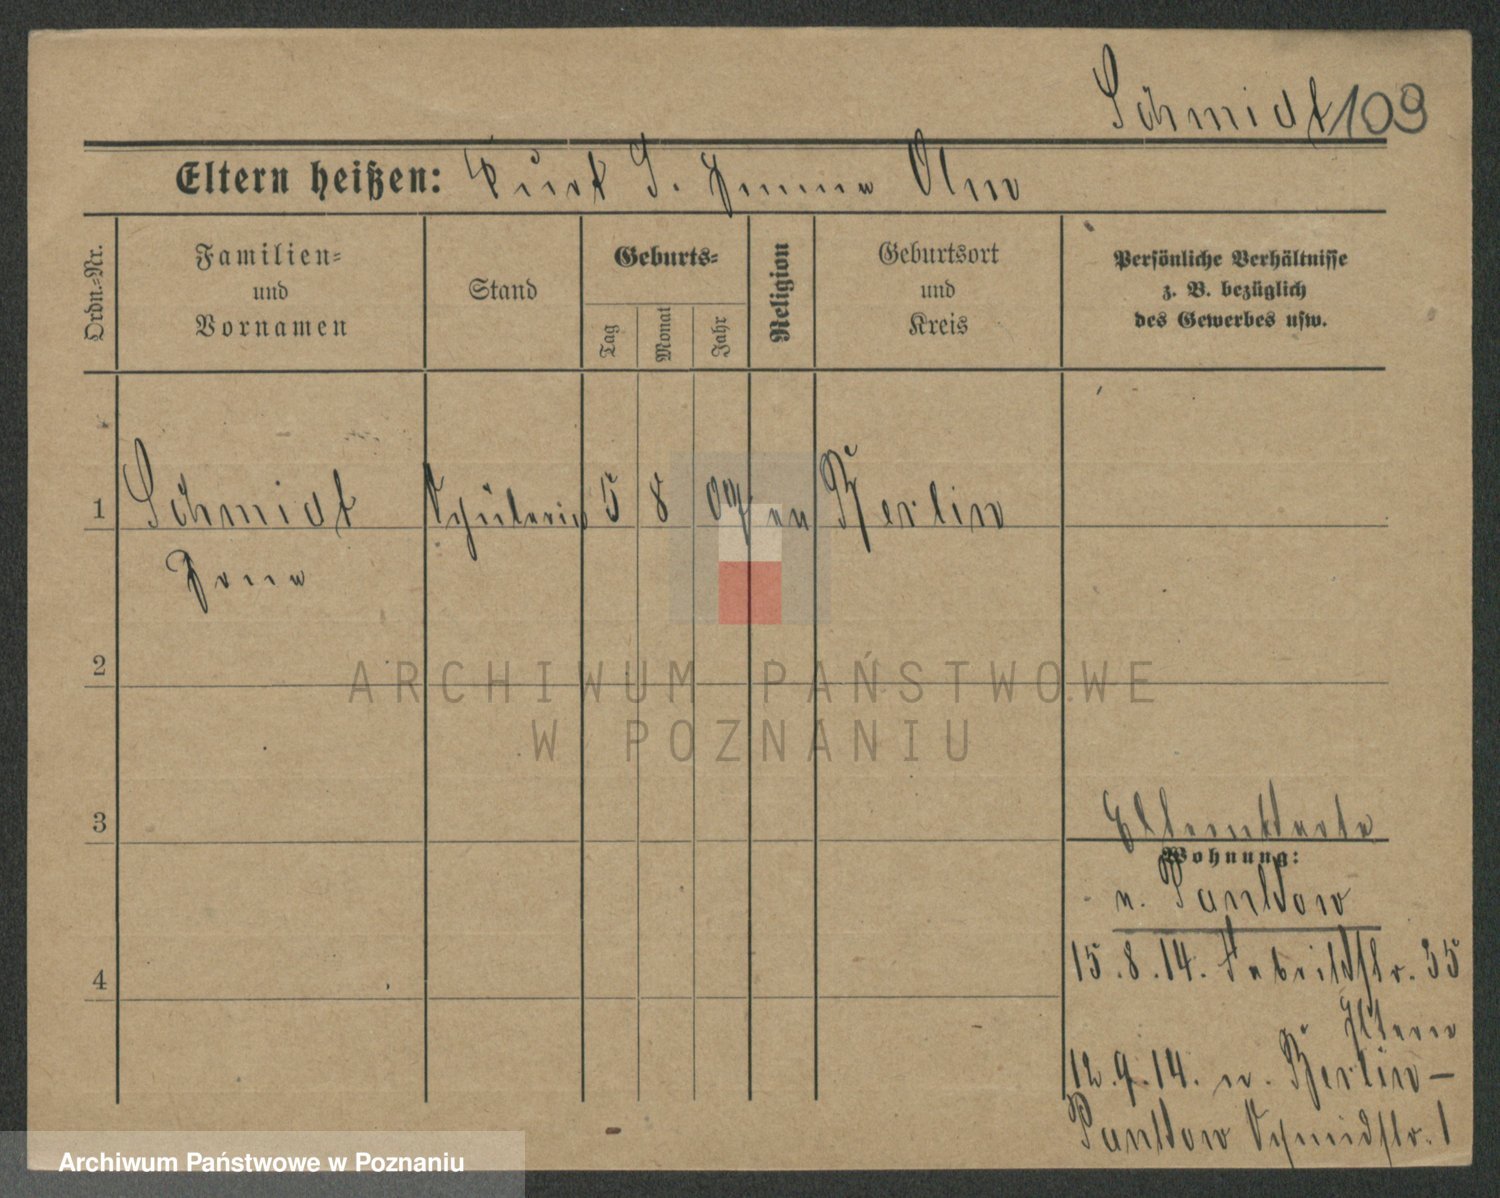 Schmidt 109
Eltern heißen: Kurt S. Emma Olm
Ordn.-Nr.
Familien-
und
Vornamen
Stand
Geburts-
Tag
Monat
Jahr
Religion
Geburtsort
und
Kreis
Persönliche Verhältnisse
z. B. bezüglich
des Gewerbes usw.
1 Schmidt Schülerin 5 8 09 ev Berlin
2
ARCHIWUM PAŃSTWOWE
W POZNANIU
3
Elternkarte
Wohnung:
n. Pankow
4
15.8.14. Fabrikstr. 35
Eltern
12.9.14. n. Berlin-
Pankow Schmidtstr. 1
Archiwum Państwowe w Poznaniu